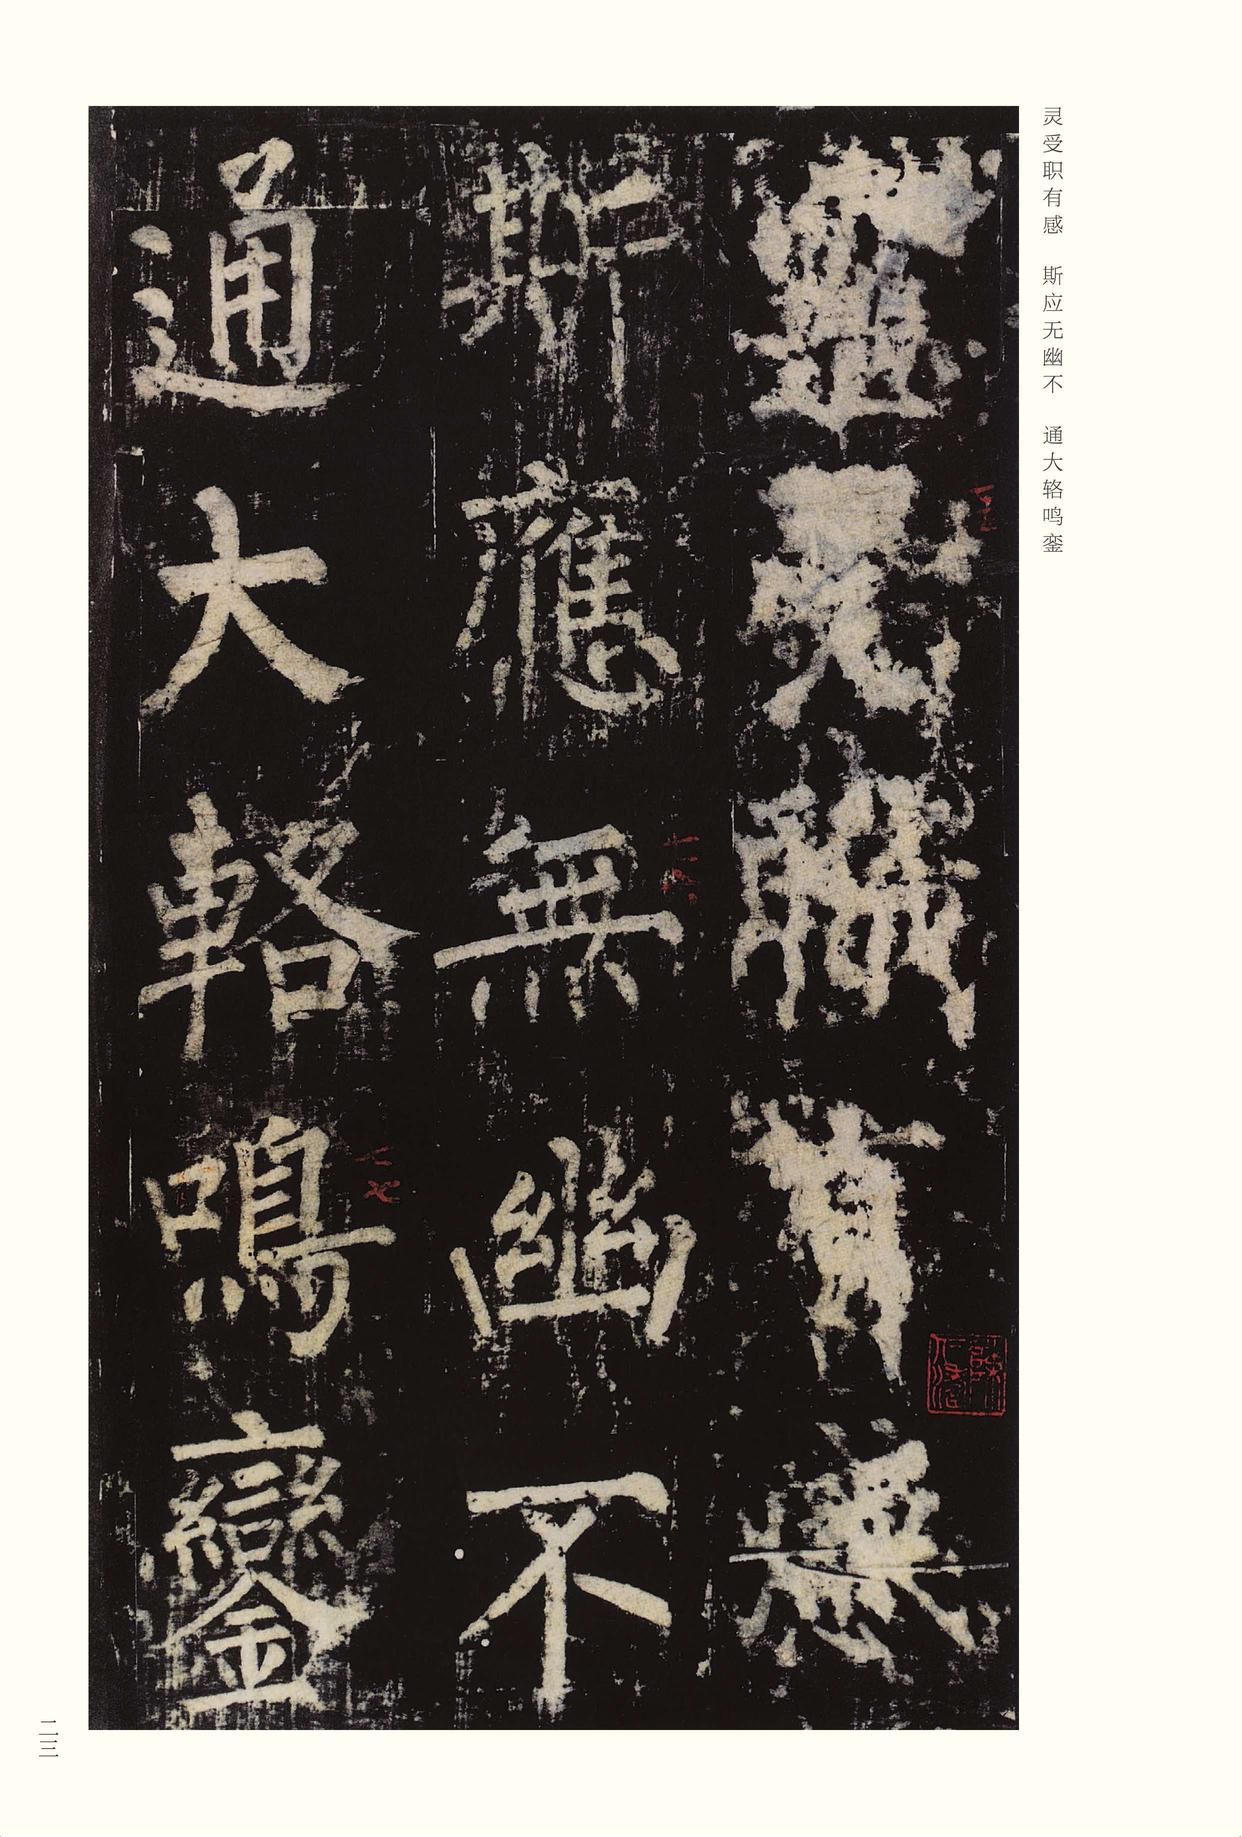 灵受职有感　斯应无幽不　通大辂鸣銮
靈受職有感
斯應無幽不
通大輅鳴鑾
二三